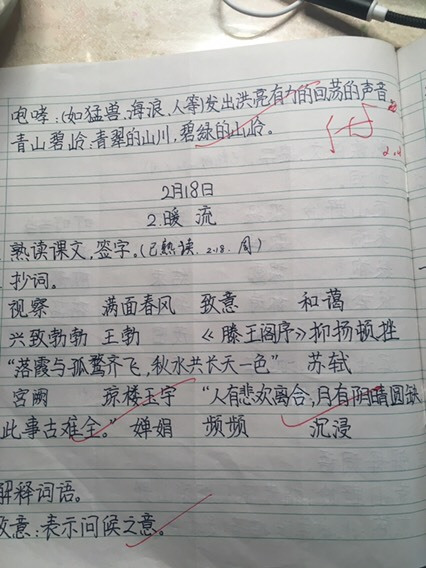 咆哮:(如猛兽.海浪.人等)发出洪亮有力的回荡的声音。
青山碧岭:青翠的山川,碧绿的山岭。
2月18日
2.暖 流
熟读课文,签字。(已熟读 2.18. 周)
抄词。
视察 满面春风 致意 和蔼
兴致勃勃 王勃 《滕王阁序》抑扬顿挫
“落霞与孤鹜齐飞,秋水共长天一色” 苏轼
宫阙 琼楼玉宇 “人有悲欢离合,月有阴晴圆缺
此事古难全。” 婵娟 频频 沉浸
解释词语。
致意:表示问候之意。